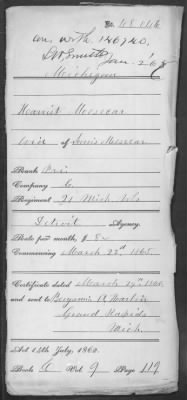 No. 48.046
Michigan
Harriet Messecar
Widow of Messecar
Rank Pri.
Company C
Regiment 21 Mich Vols
Detroit Agency.
Rate per month, $ 8
Commencing March 1865
Certificate dated March 29th 1865
and sent to Benjamin A Harlan
Grand Rapids
Mich.
Act 14th July, 1862.
Book Vol. 9 Page 119